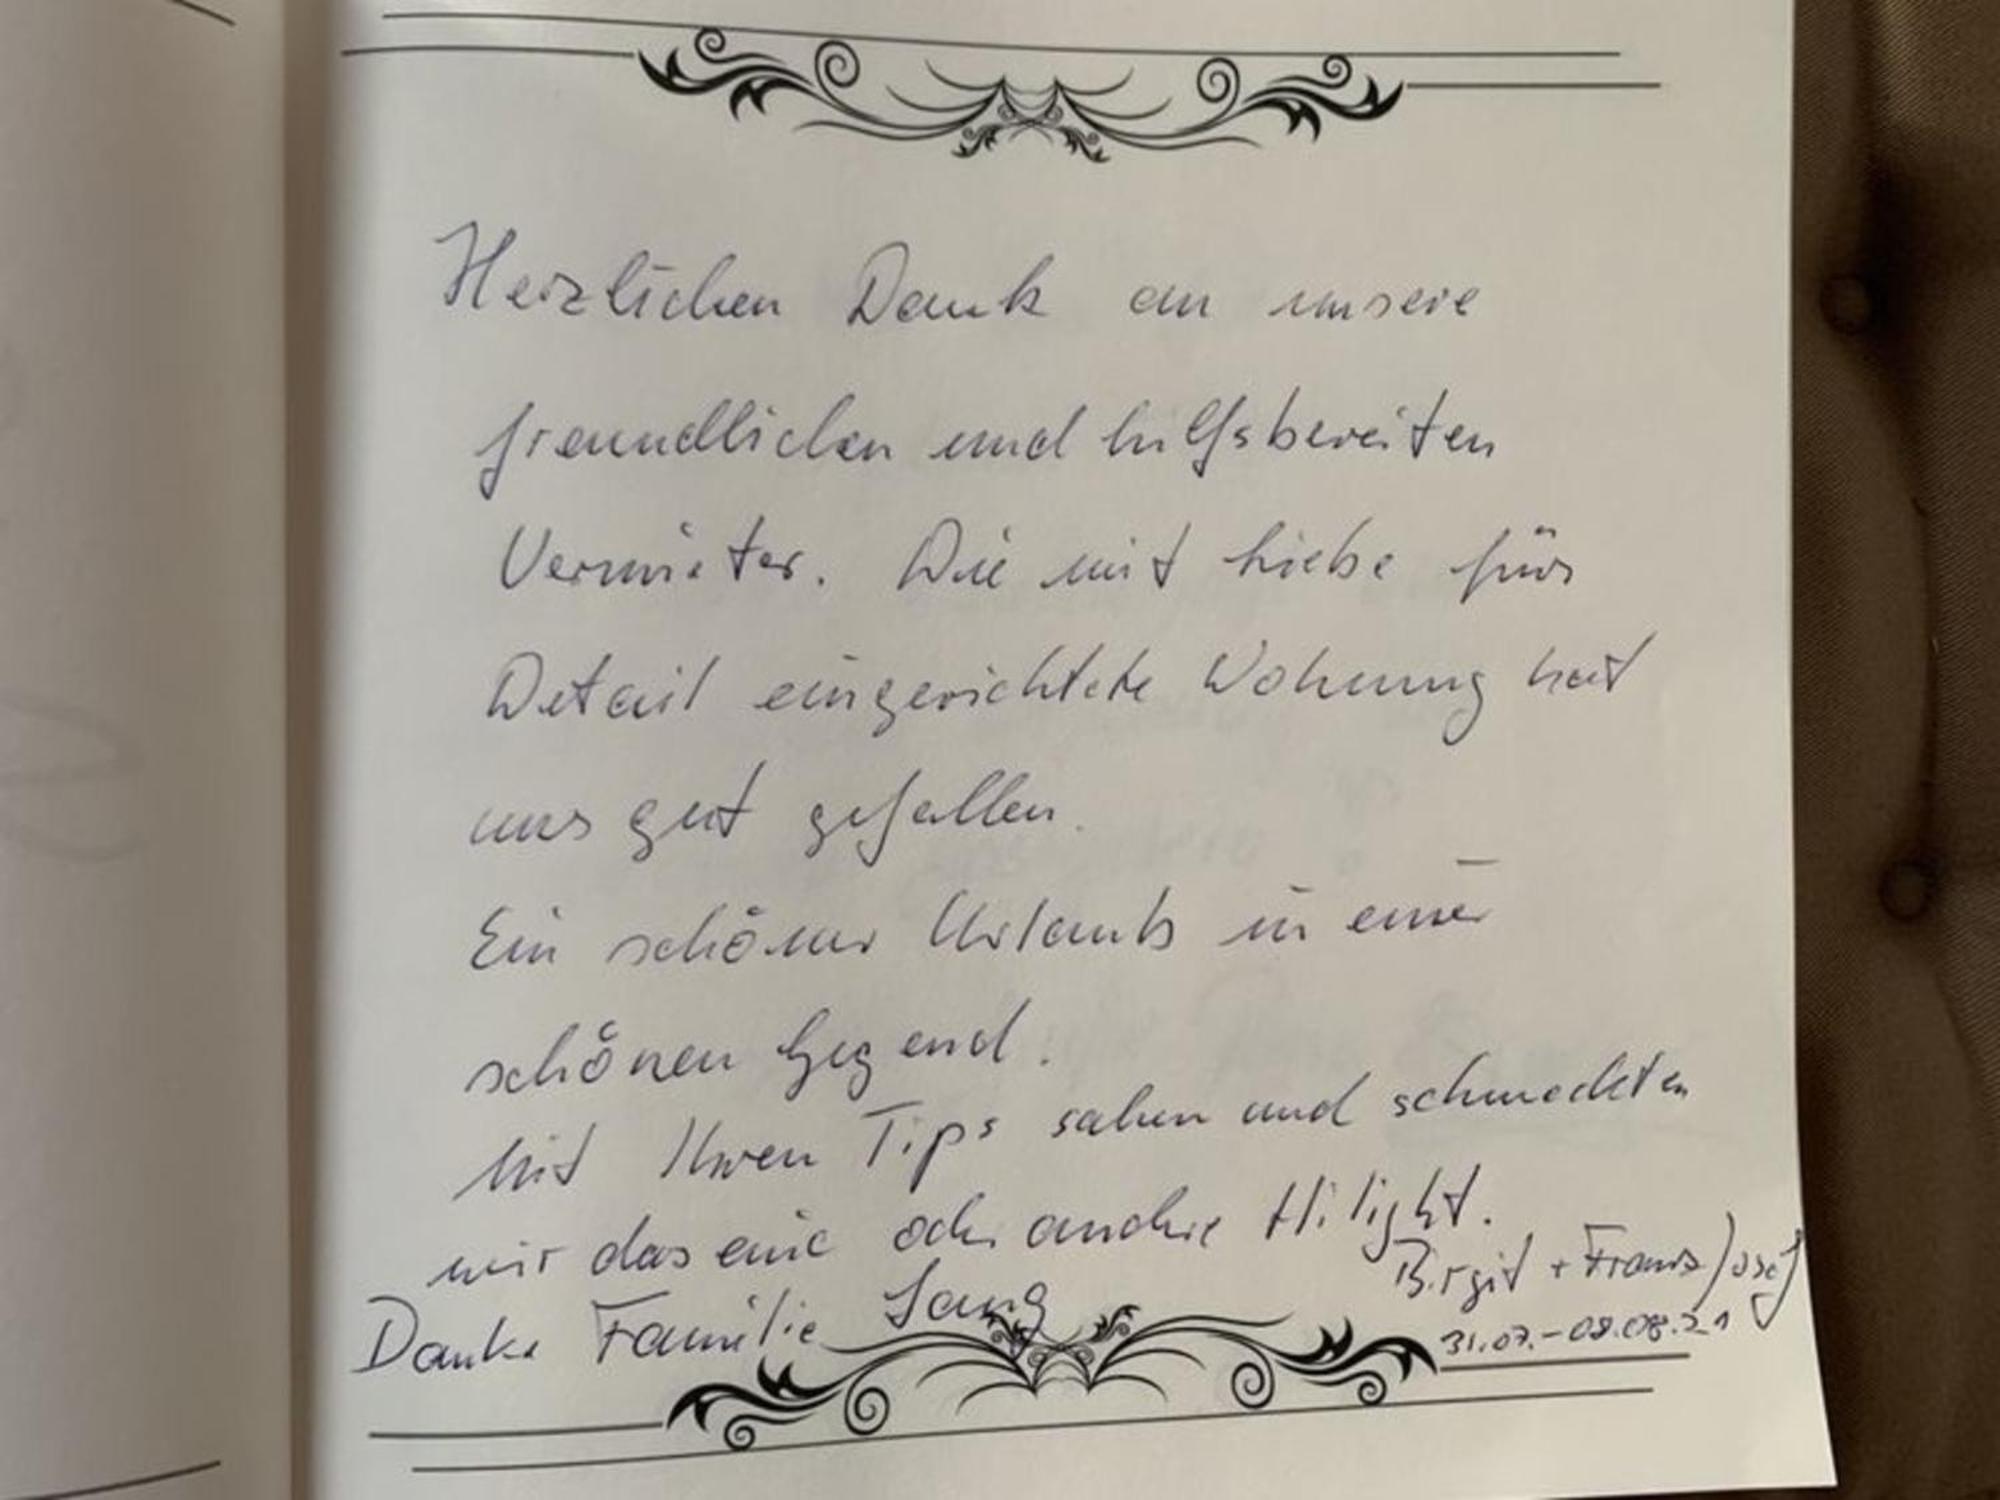 Herzlichen Dank an unsere
freundlichen und hilfsbereiten
Vermieter. Die mit Liebe fürs
Detail eingerichtete Wohnung hat
uns gut gefallen.
Ein schöner Urlaub in einer
schönen Gegend.
Mit Ihren Tips sahen und schmeckten
wir das eine oder andere Hilight.
Birgit + Franz Josef
Danke Familie
31.07. - 08.08.21